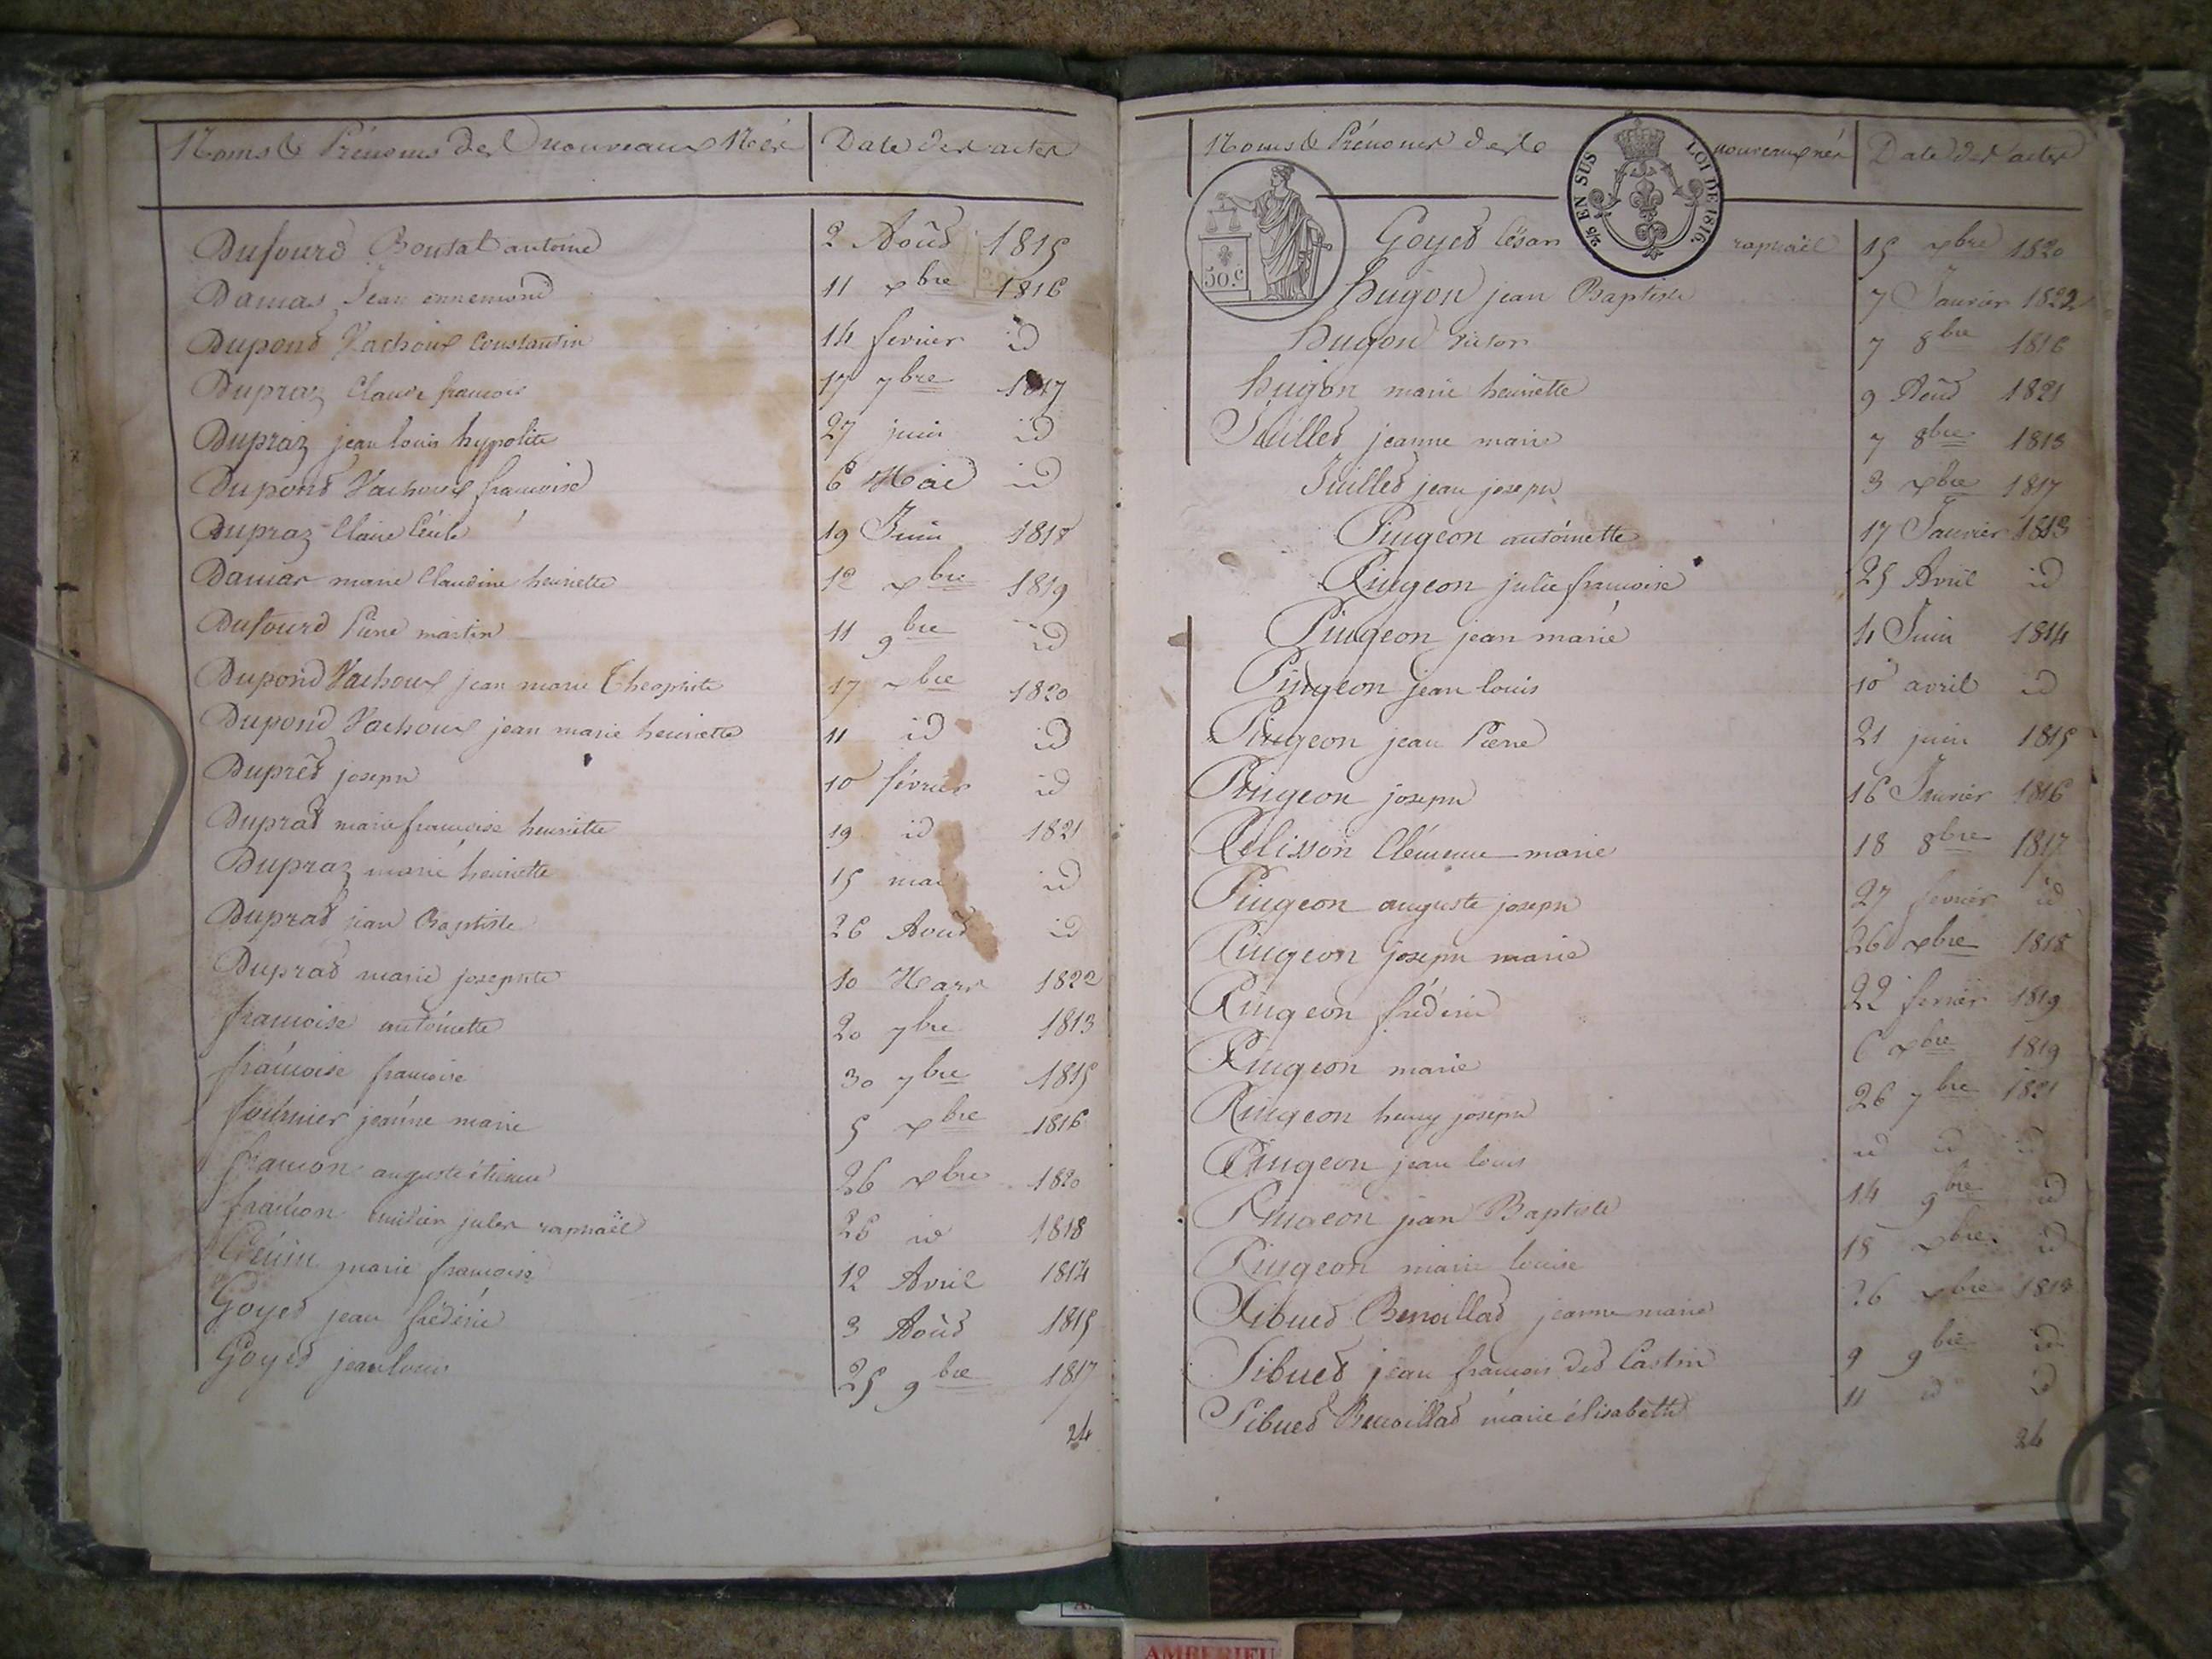 Noms & Prénoms des nouveaux Nés Date des actes
Dufourd Boutat antoine 2 Aoûd 1815
Damas Jean ennemond 11 xbre 1816
Dupond Vachoux Constantin 14 fevrier id
Dupraz Claude francois 17 7bre 1817
Dupraz jean louis hypolite 27 juin id
Dupond Vachoux francoise 6 Mai id
Dupraz Claire Cécile 19 Juin 1818
Damas marie Claudine henriette 12 xbre 1819
Dufourd Pierre martin 11 9bre id
Dupond Vachoux jean marie Theophiste 17 xbre 1820
Dupond Vachoux jean marie henriette 11 id id
Dupréd joseph 10 février id
Duprad marie francoise henriette 19 id 1821
Dupraz marie henriette 15 mai id
Duprad jean Baptiste 26 Aoud id
Duprad marie josephte 10 Mars 1822
francoise antoinette 20 7bre 1813
francoise francoise 30 7bre 1815
fournier jeanne marie 5 xbre 1816
francon auguste étienne 26 xbre 1820
francon jules raphaël 26 id 1818
marie francoise 12 Avril 1814
Goyed jean frédéric 3 Aoûd 1815
Goyed jean louis 25 9bre 1817
24
Noms & Prénoms des nouveaux nés Date des actes
2/5 EN SUS LOI DE 1816.
50.c
Goyed Césan raphaël 15 xbre 1820
hugon jean Baptiste 7 Janvier 1822
hugon victor 7 8bre 1816
hugon marie henriette 9 Aoûd 1821
Juilled jeanne marie 7 8bre 1813
Juilled jean joseph 3 xbre 1817
Pingeon antoinette 17 Janvier 1813
Pingeon julie francoise 25 Avril id
Pingeon jean marie 4 Juin 1814
Pingeon jean louis 10 avril id
Pingeon jean Pierre 21 juin 1815
Pingeon joseph 16 Janvier 1816
Pelisson Clémence marie 18 8bre 1817
Pingeon auguste joseph 27 fevrier id
Pingeon joseph marie 26 xbre 1818
Pingeon frédéric 22 fevrier 1819
Pingeon marie 6 xbre 1819
Pingeon henry joseph 26 7bre 1821
Pingeon jean louis id id id
Pingeon jean Baptiste 14 9bre id
Pingeon marie louise 18 xbre id
Sibued Benoillad jeanne marie 26 xbre 1813
Sibued jean francois ded Castin 9 9bre id
Sibued Benoillad marie élisabeth 11 id id
24
AMBERIEU